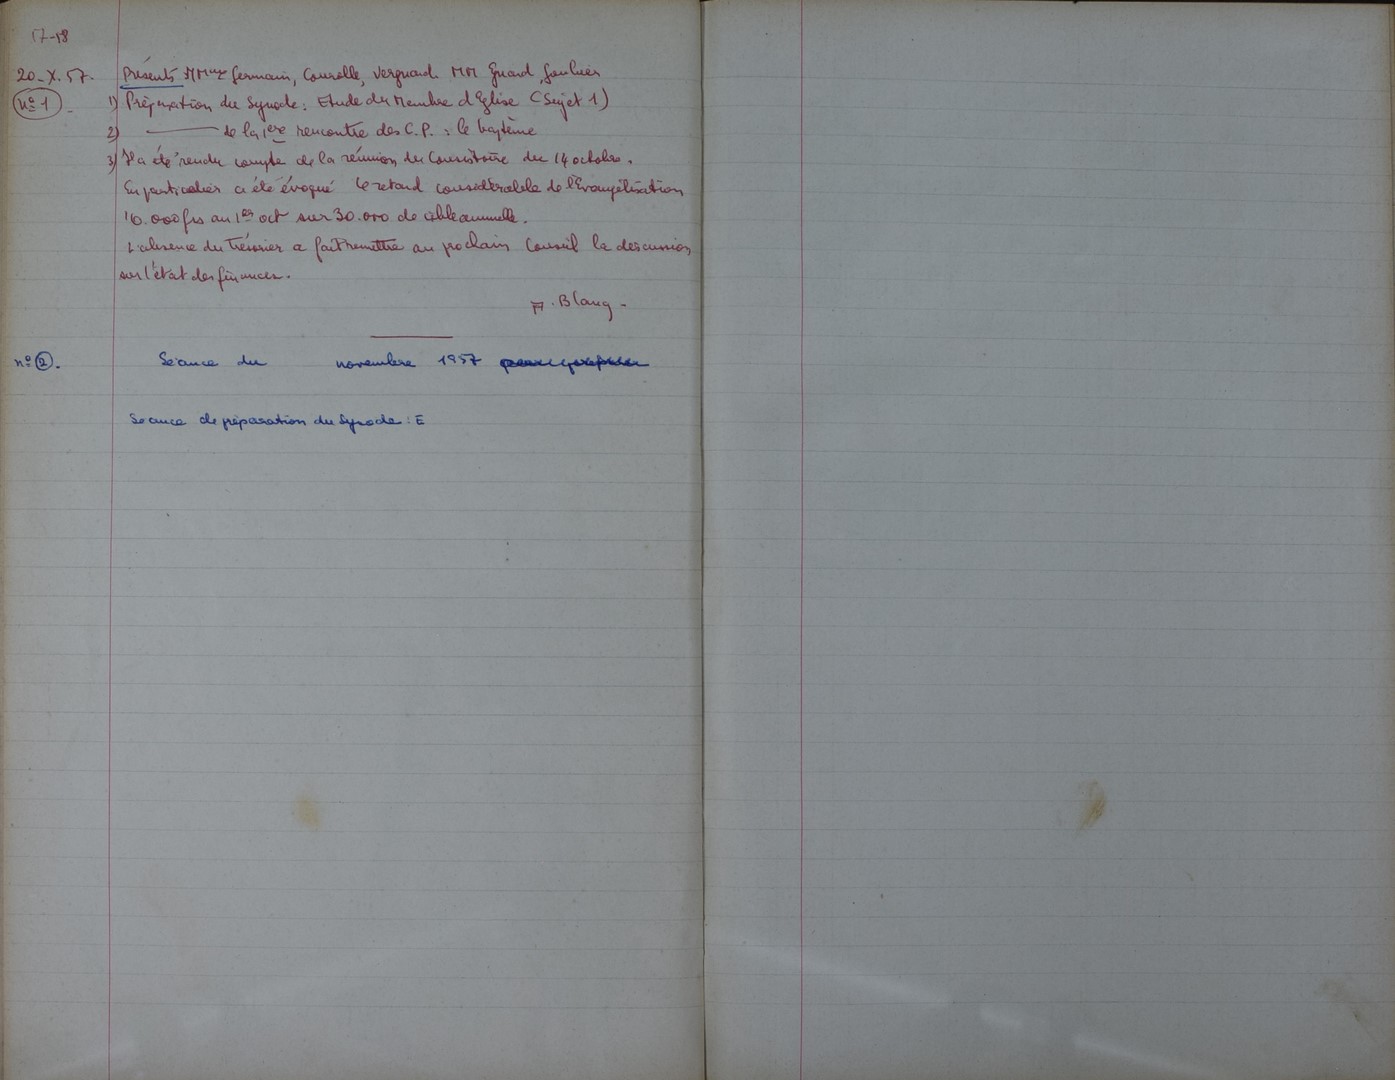 57-58
20-X.57. Présents MMmes Germain, Courelle, Vergnard. MM Guard, Saulnier
n° 1 1) Préparation du Synode : Etude du Membre d'Eglise (Sujet 1)
2) ——— de la 1ère rencontre des C.P. : le baptême
3) Il a été rendu compte de la réunion du Consistoire du 14 octobre.
En particulier a été évoqué le retard considérable de l'Evangélisation
10.000 frs au 1er oct sur 30.000 de cible annuelle.
L'absence du Trésorier a fait remettre au prochain Conseil la discussion
sur l'état des finances.
A. Blanq -
n° 2. Séance du novembre 1957
Séance de préparation du Synode : E